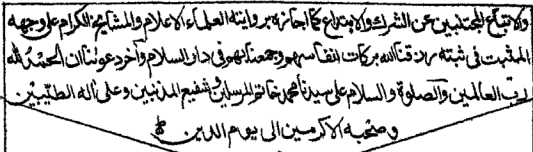 والاتباع المجتنبين عن الشرك والابتداع كما اجازه بروايته العلماء الاعلام والمشايخ الكرام على وجهه
المثبت فى ثبته رزقنا الله بركات انفاسهم وجمعنا بهم فى دار السلام وآخر دعوٰنا ان الحمد لله
رب العالمين والصلوة والسلام على سيدنا محمد خاتم المرسلين وشفيع المذنبين وعلى آله الطيبين
وصحبه الاكرمين الى يوم الدين